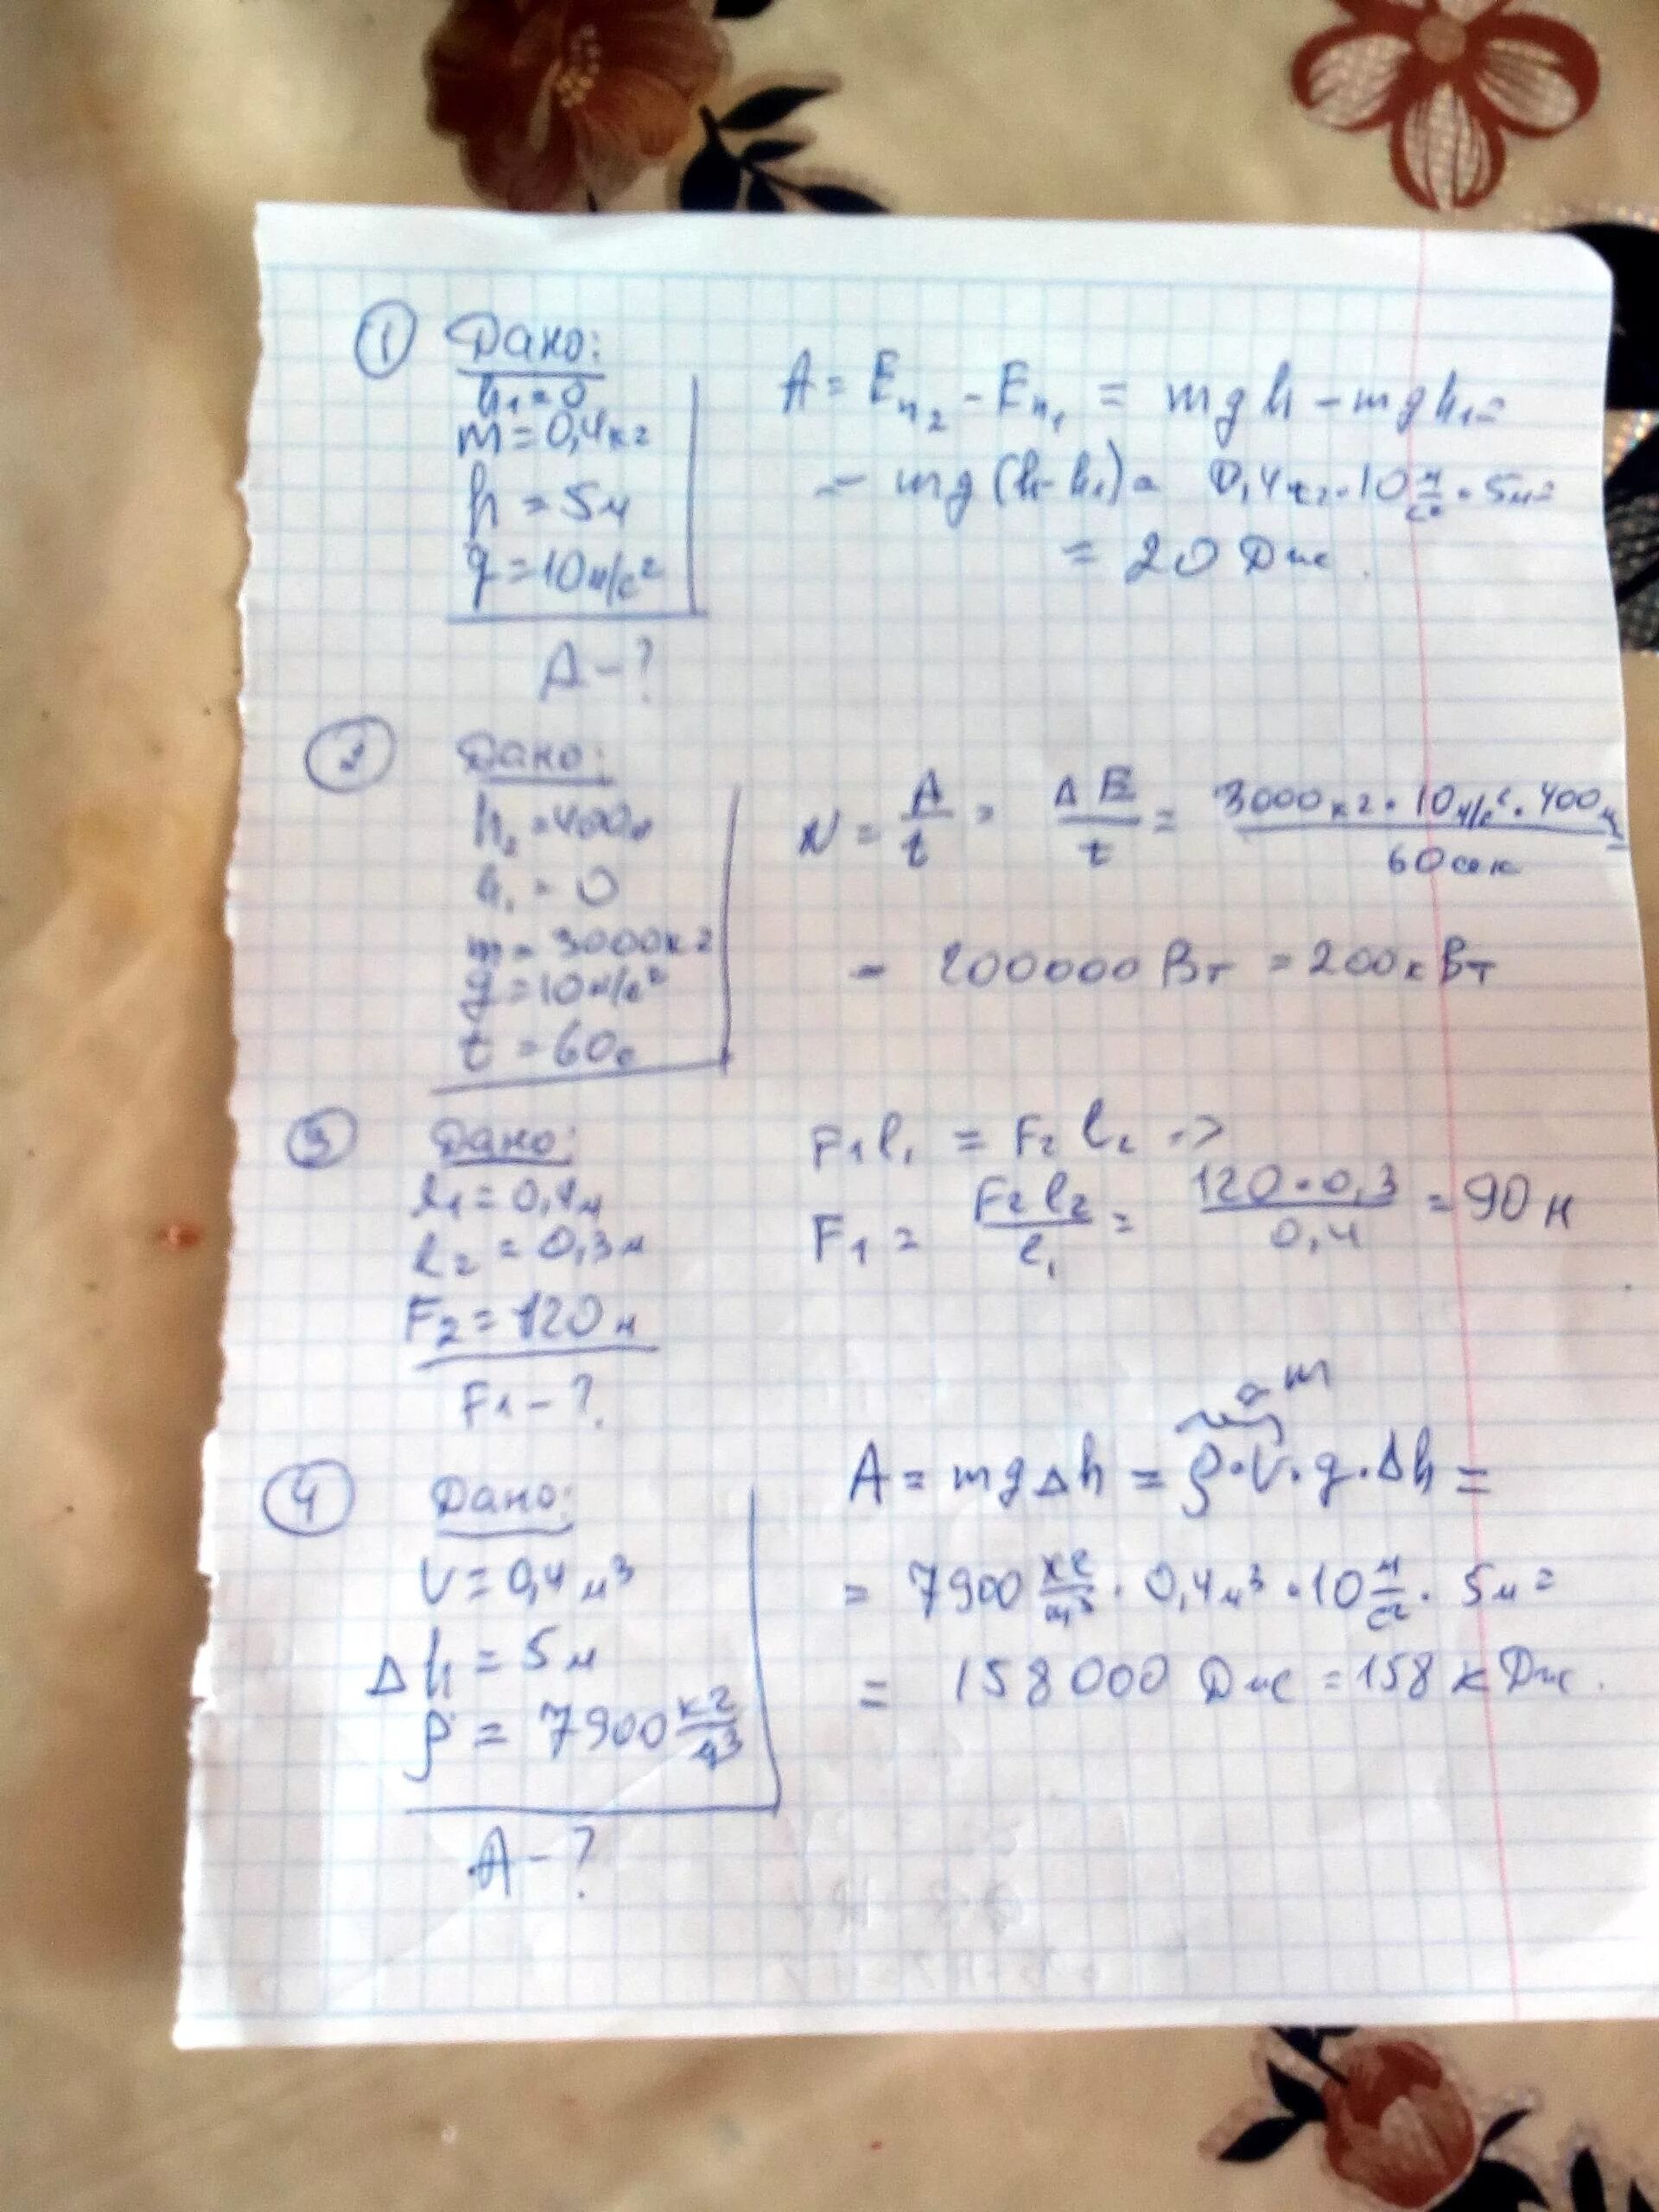 ① Дано:
h₁=0
m=0,4кг
h=5м
g=10м/с²
A-?
A = Eп₂ - Eп₁ = mgh - mgh₁=
= mg(h-h₁)= 0,4кг·10 м/с² · 5м=
= 20 Дж.
② Дано:
h₂=400м
h₁=0
m=3000кг
g=10м/с²
t=60с
N = A/t = ΔE/t = 3000кг·10м/с²·400м/60сек =
= 200000 Вт = 200кВт
③ Дано:
l₁=0,4м
l₂=0,3м
F₂=120н
F₁-?
F₁l₁ = F₂l₂ ->
F₁ = F₂l₂/l₁ = 120·0,3/0,4 = 90 н
④ Дано:
V=0,4м³
Δh=5м
ρ=7900 кг/м³
A-?
= m
A = mgΔh = ρ·V·g·Δh =
= 7900 кг/м³ · 0,4м³ · 10 м/с² · 5м =
= 158000 Дж = 158 кДж.